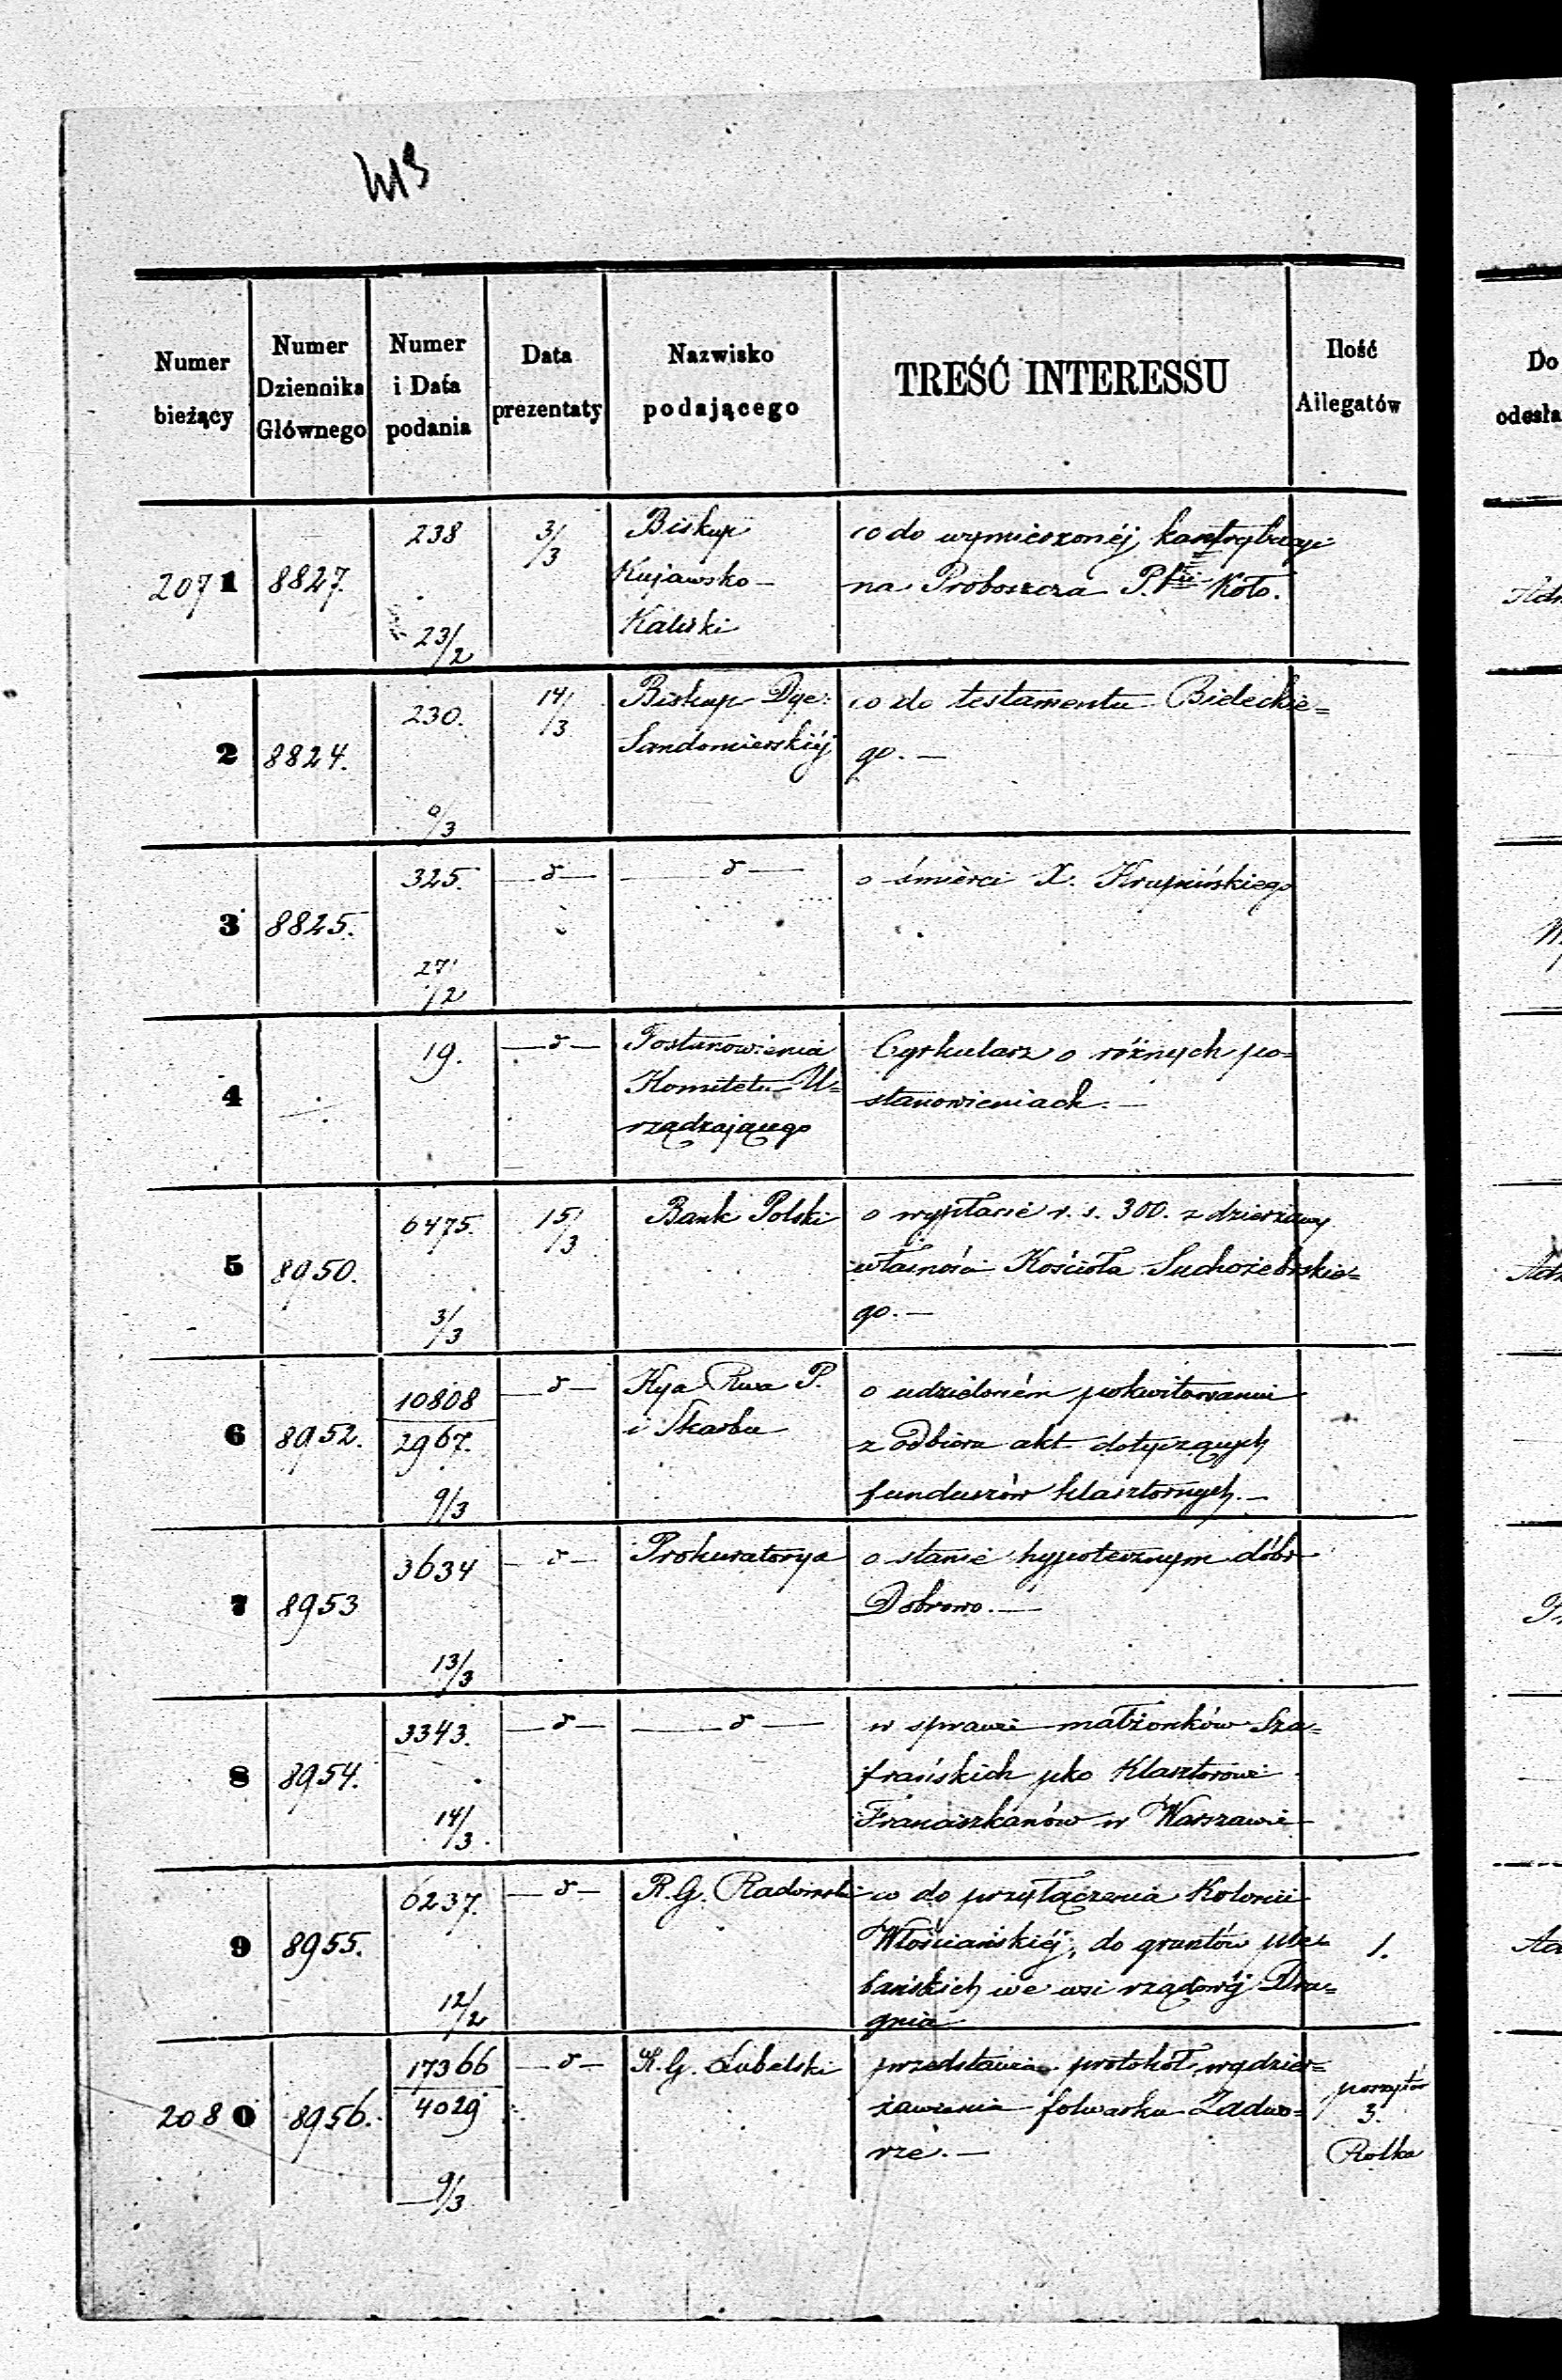 413
Numer
bieżący
Numer
Dziennika
Głównego
Numer
i Data
podania
Data
prezentaty
Nazwisko
podającego
TREŚĆ INTERESSU
Ilość
Allegatów
Do
odesła
2071
8827.
238
23/2
3/3
Biskup
Kujawsko-
Kaliski
co do wymierzonéj kontrybucyi
na Proboszcza P. Koło.
2
8824.
230.
9/3
14/3
Biskup Dye.
Sandomierskiéj
co do testamentu Bieleckie=
go. —
3
8825.
325.
27/2
— d —
— d —
o śmierci X. Krupińskiego
4
19.
— d —
Postanowienia
Komitetu U=
rządzającego
Cyrkularz o różnych po=
stanowieniach. —
5
8950.
6475.
3/3
15/3
Bank Polski
o wypłacie r. s. 300. z dzierżawy
własności Kościoła Suchożebrskie=
go. —
6
8952.
10808
2967.
9/3
— d —
Kya Rwa P.
i Skarbu
o udzieloném pokwitowaniu
z odbioru akt dotyczących
funduszów klasztornych. —
7
8953
3634
13/3
— d —
Prokuratorya
o stanie hypotecznym dóbr
Dobrowo. —
8
8954.
3343.
14/3.
— d —
— d —
w sprawie małżonków Sza=
frańskich pko Klasztorowi
Franciszkanów w Warszawie
9
8955.
6237.
12/2
— d —
R. G. Radomski
co do przyłączenia Kolonii
Włościańskiéj, do gruntów ple=
bańskich we wsi rządowéj Dru=
gnia
1.
2080
8956.
17366
4029
9/3
— d —
R. G. Lubelski
przedstawia protokół wydzier=
żawienia folwarku Zadwo=
rze. —
3.
Rolka